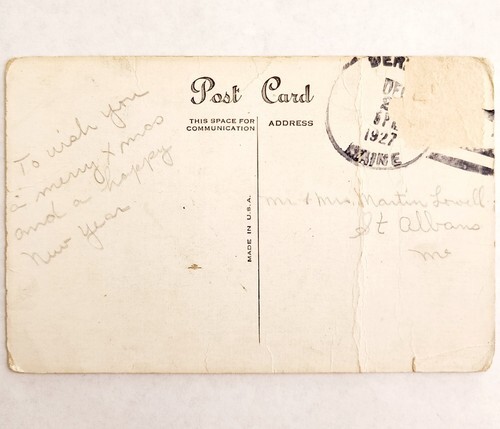 Post Card
THIS SPACE FOR
COMMUNICATION
ADDRESS
To wish you
a merry Xmas
and a happy
New Year
MADE IN U.S.A.
1927
MAINE
Mr & Mrs. Martin Lowell
St Albans
Me